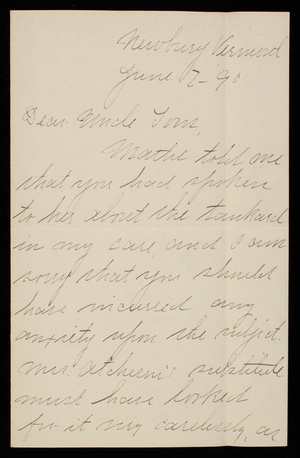 Newbury Vermont
June 17-90
Dear Uncle Tom,
Mattie told me
that you had spoken
to her about the tankard
in my care and I am
sorry that you should
have incurred any
anxiety upon the subject.
Mrs substitute
must have looked
for it very carelessly, as